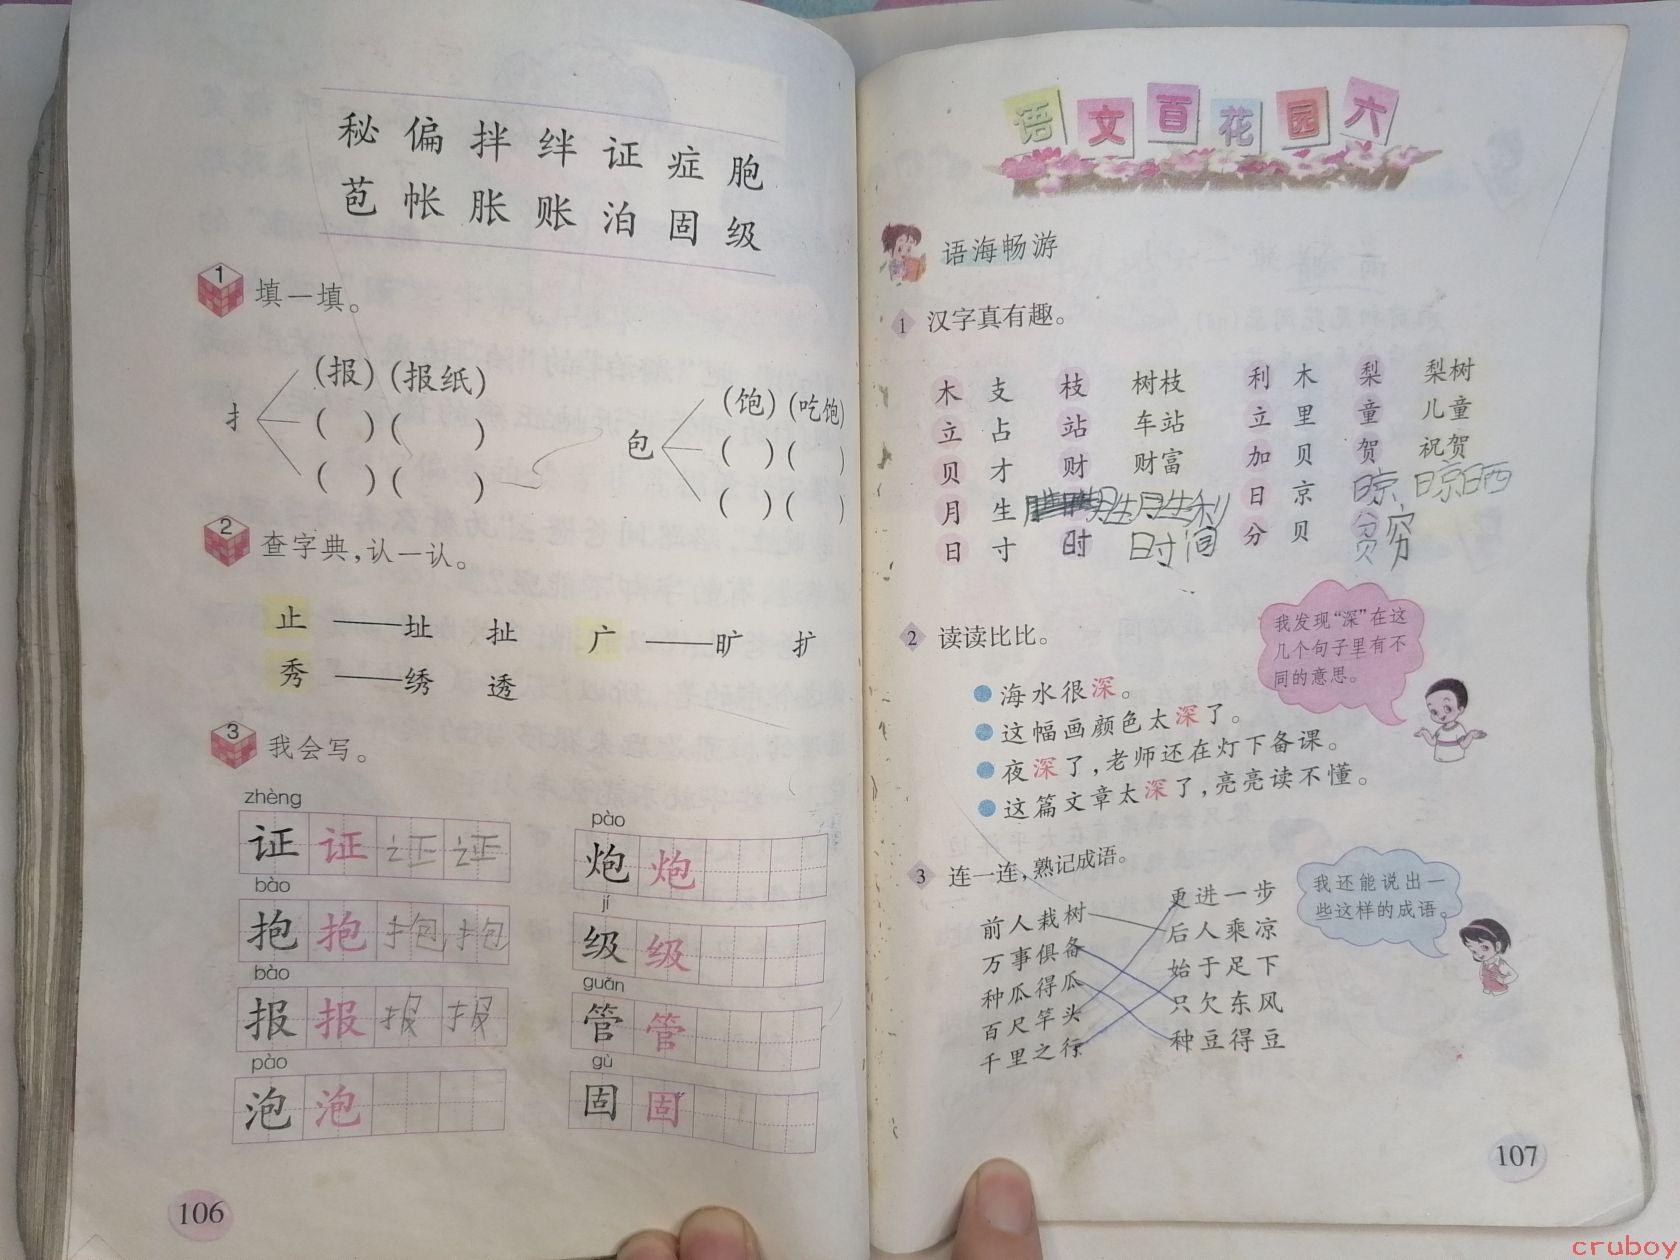 秘 偏 拌 绊 证 症 胞
苞 帐 胀 账 泊 固 级
1 填一填。
扌 (报) (报纸)
( ) ( )
( ) ( )
包 (饱) (吃饱)
( ) ( )
( ) ( )
2 查字典,认一认。
止 ——址 扯 广 ——旷 扩
秀 ——绣 透
3 我会写。
zhèng
证 证 证 证
bào
抱 抱 抱 抱
bào
报 报 报 报
pào
泡 泡
pào
炮 炮
jí
级 级
guǎn
管 管
gù
固 固
106
语文百花园六
语海畅游
1 汉字真有趣。
木 支 枝 树枝 利 木 梨 梨树
立 占 站 车站 立 里 童 儿童
贝 才 财 财富 加 贝 贺 祝贺
月 生 胜 胜利 日 京 晾 晾晒
日 寸 时 时间 分 贝 贫 穷
2 读读比比。
我发现“深”在这
几个句子里有不
同的意思。
海水很深。
这幅画颜色太深了。
夜深了,老师还在灯下备课。
这篇文章太深了,亮亮读不懂。
3 连一连,熟记成语。
前人栽树 更进一步
万事俱备 后人乘凉
种瓜得瓜 始于足下
百尺竿头 只欠东风
千里之行 种豆得豆
我还能说出一
些这样的成语。
107
cruboy